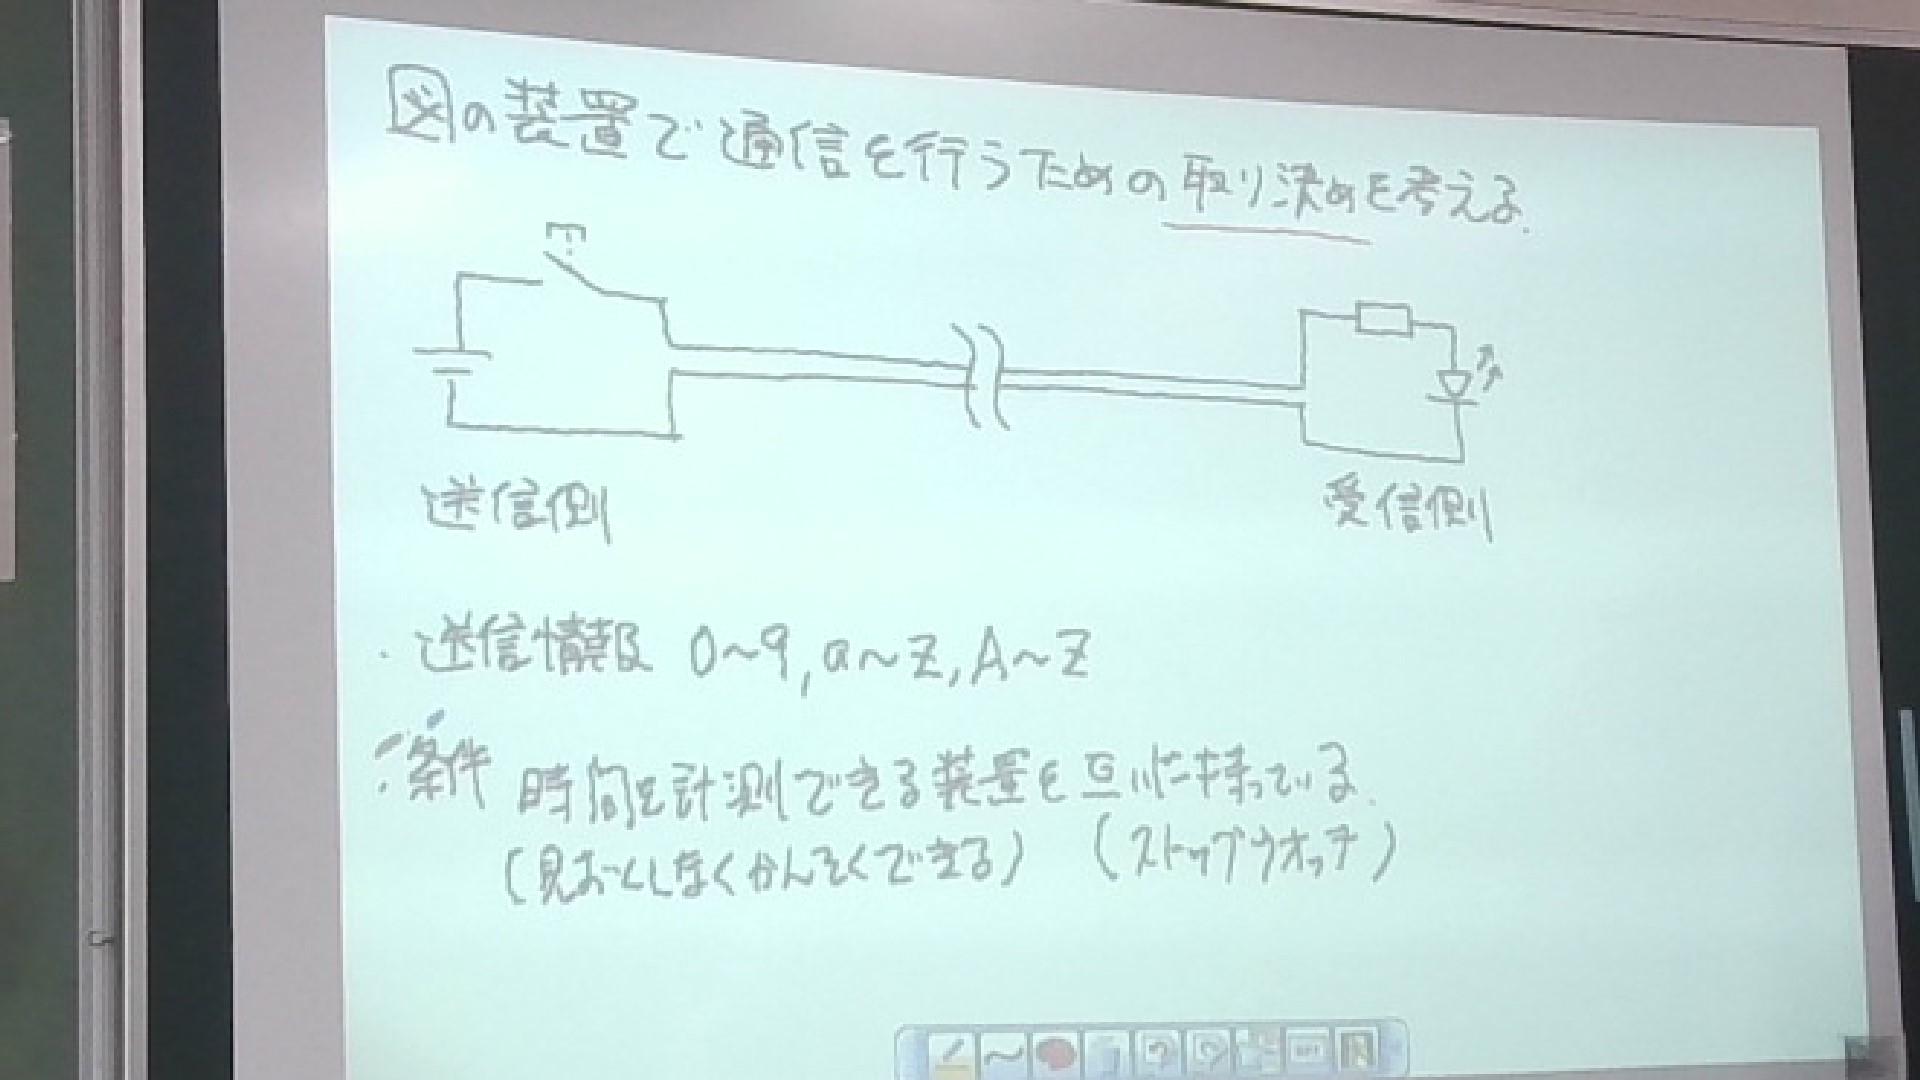 図の装置で通信を行うための取り決めを考える.
送信側
受信側
・送信情報 0~9, a~z, A~Z
・条件 時間を計測できる装置を互いに持っている.
(見おとしなくかんそくできる) (ストップウオッチ)